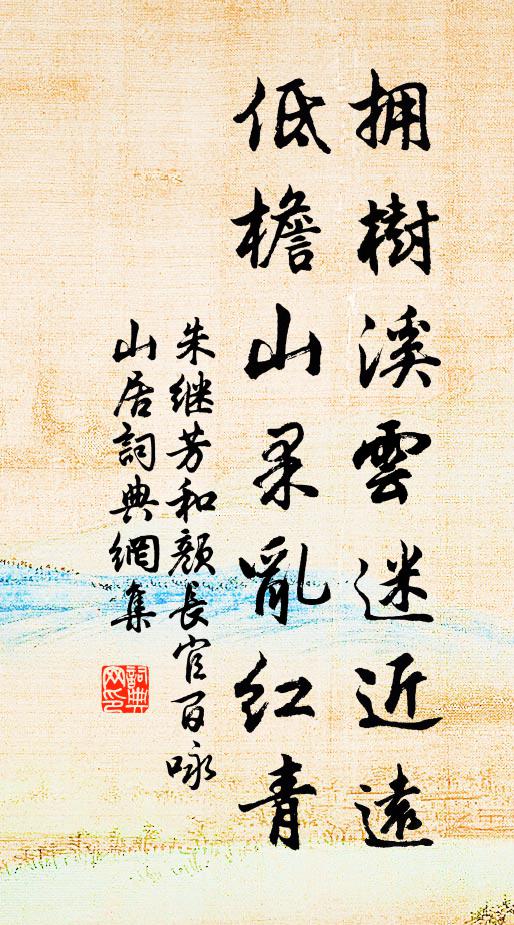 拥樹溪雲迷近遠
低檐山果亂红青
朱继芳和颜长官百咏
山居詞典網集
詞典网印